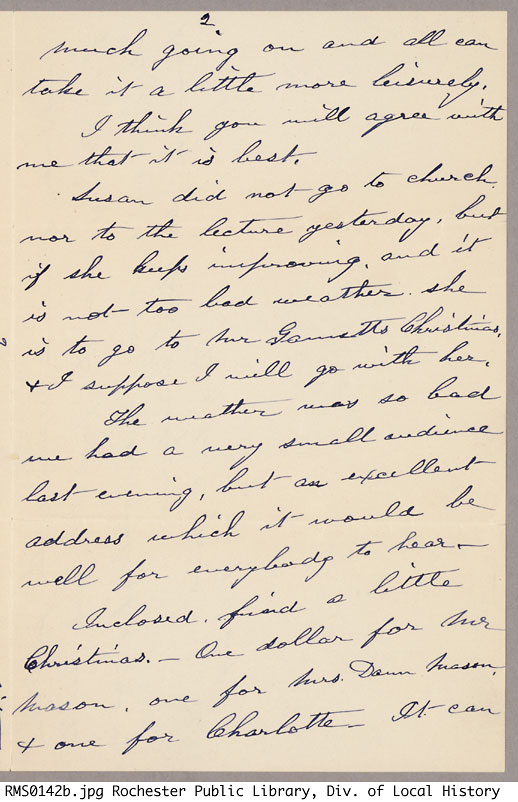 2
much going on and all can
take it a little more leisurely.
I think you will agree with
me that it is best.
Susan did not go to church
nor to the lecture yesterday, but
if she keeps improving, and it
is not too bad weather. she
is to go to Mr Gannetts Christmas,
& I suppose I will go with her.
The weather was so bad
we had a very small audience
last evening, but an excellent
address which it would be
well for everybody to hear—
Inclosed. find a little
Christmas. — One dollar for Mr
Mason, one for Mrs. Dann Mason,
& one for Charlotte — It can
RMS0142b.jpg Rochester Public Library, Div. of Local History